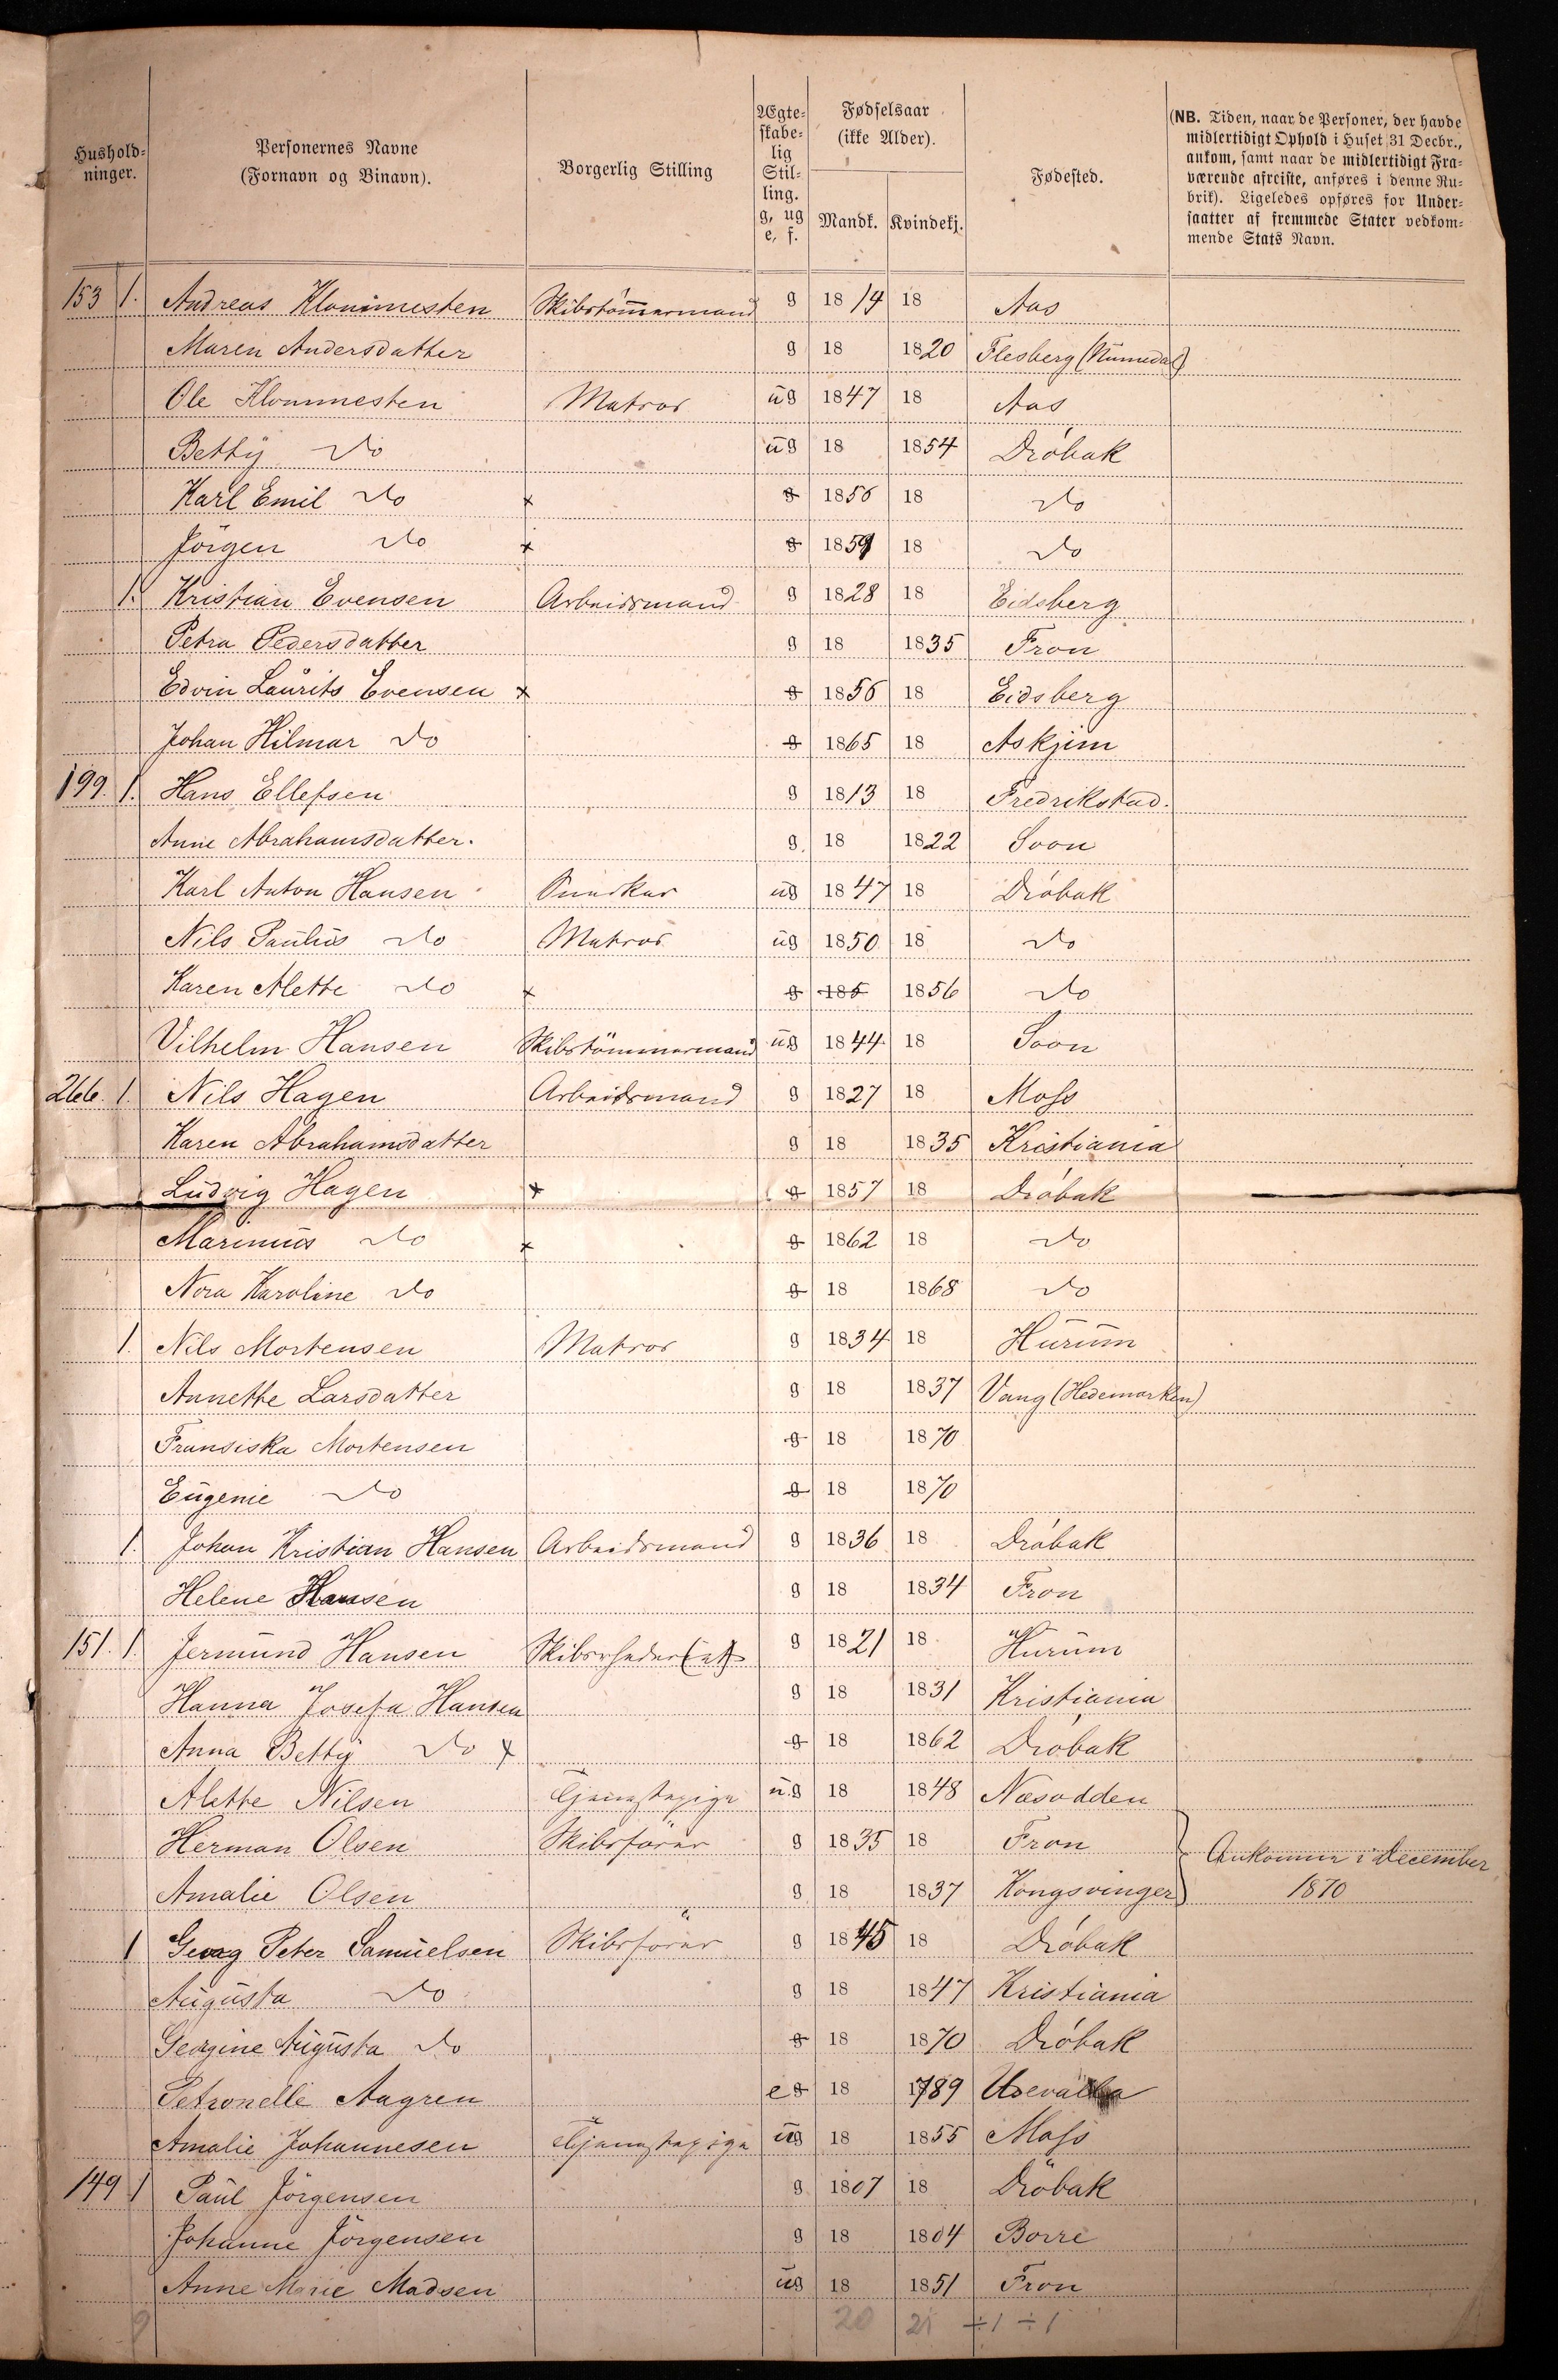 Hushold-
ninger.
Personernes Navne
(Fornavn og Binavn).
Borgerlig Stilling
Ægte-
skabe-
lig
Stil-
ling.
g, ug
e, f.
Fødselsaar
(ikke Alder).
Mandk. Kvindekj.
Fødested.
(NB. Tiden, naar de Personer, der havde
midlertidigt Ophold i Huset 31 Decbr.,
ankom, samt naar de midlertidigt Fra-
værende afreiste, anføres i denne Ru-
brik). Ligeledes opføres for Under-
saatter af fremmede Stater vedkom-
mende Stats Navn.
153 1. Andreas Klommesten Skibstömmermand g 1814 18 Aas
Maren Andersdatter g 18 1820 Flesberg (Numedal)
Ole Klommesten Matros ug 1847 18 Aas
Betty Do ug 18 1854 Dröbak
Karl Emil Do x g 1856 18 Do
Jörgen Do x g 1859 18 Do
1. Kristian Evensen Arbeidsmand g 1828 18 Eidsberg
Petra Pedersdatter g 18 1835 Fron
Edvin Laurits Evensen x g 1856 18 Eidsberg
Johan Hilmar Do g 1865 18 Askjim
199. 1. Hans Ellefsen g 1813 18 Fredrikstad.
Anne Abrahamsdatter. g 18 1822 Soon
Karl Anton Hansen Snedker ug 1847 18 Dröbak
Nils Paulus Do Matros ug 1850 18 Do
Karen Alette Do x g 185 1856 Do
Vilhelm Hansen Skibstömmermand ug 1844 18 Soon
266. 1. Nils Hagen Arbeidsmand g 1827 18 Moss
Karen Abrahamsdatter g 18 1835 Kristiania
Ludvig Hagen x g 1857 18 Dröbak
Marinius Do x g 1862 18 Do
Nora Karoline Do g 18 1868 Do
1. Nils Mortensen Matros g 1834 18 Hurum
Annette Larsdatter g 18 1837 Vang (Hedemarken)
Fransiska Mortensen g 18 1870
Eugenie Do g 18 1870
1. Johan Kristian Hansen Arbeidsmand g 1836 18 Dröbak
Helene Hansen g 18 1834 Fron
151. 1. Jermund Hansen Skibsrheder g 1821 18 Hurum
Hanna Josefa Hansen g 18 1831 Kristiania
Anna Betty Do x g 18 1862 Dröbak
Alette Nilsen Tjenestepige u.g 18 1848 Næsodden
Herman Olsen Skibsförer g 1835 18 Fron
Ankomne i December
Amalie Olsen g 18 1837 Kongsvinger 1870
1 Georg Peter Samuelsen Skibsförer g 1845 18 Dröbak
Augusta Do g 18 1847 Kristiania
Georgine Augusta Do g 18 1870 Dröbak
Petronelle Aagren e g 18 1789 Udevalla
Amalie Johannesen Tjenestepige ug 18 1855 Moss
149 1 Paul Jörgensen g 1807 18 Dröbak
Johanne Jörgensen g 18 1804 Borre
Anne Marie Madsen ug 18 1851 Fron
9 20 21 ÷1 ÷1